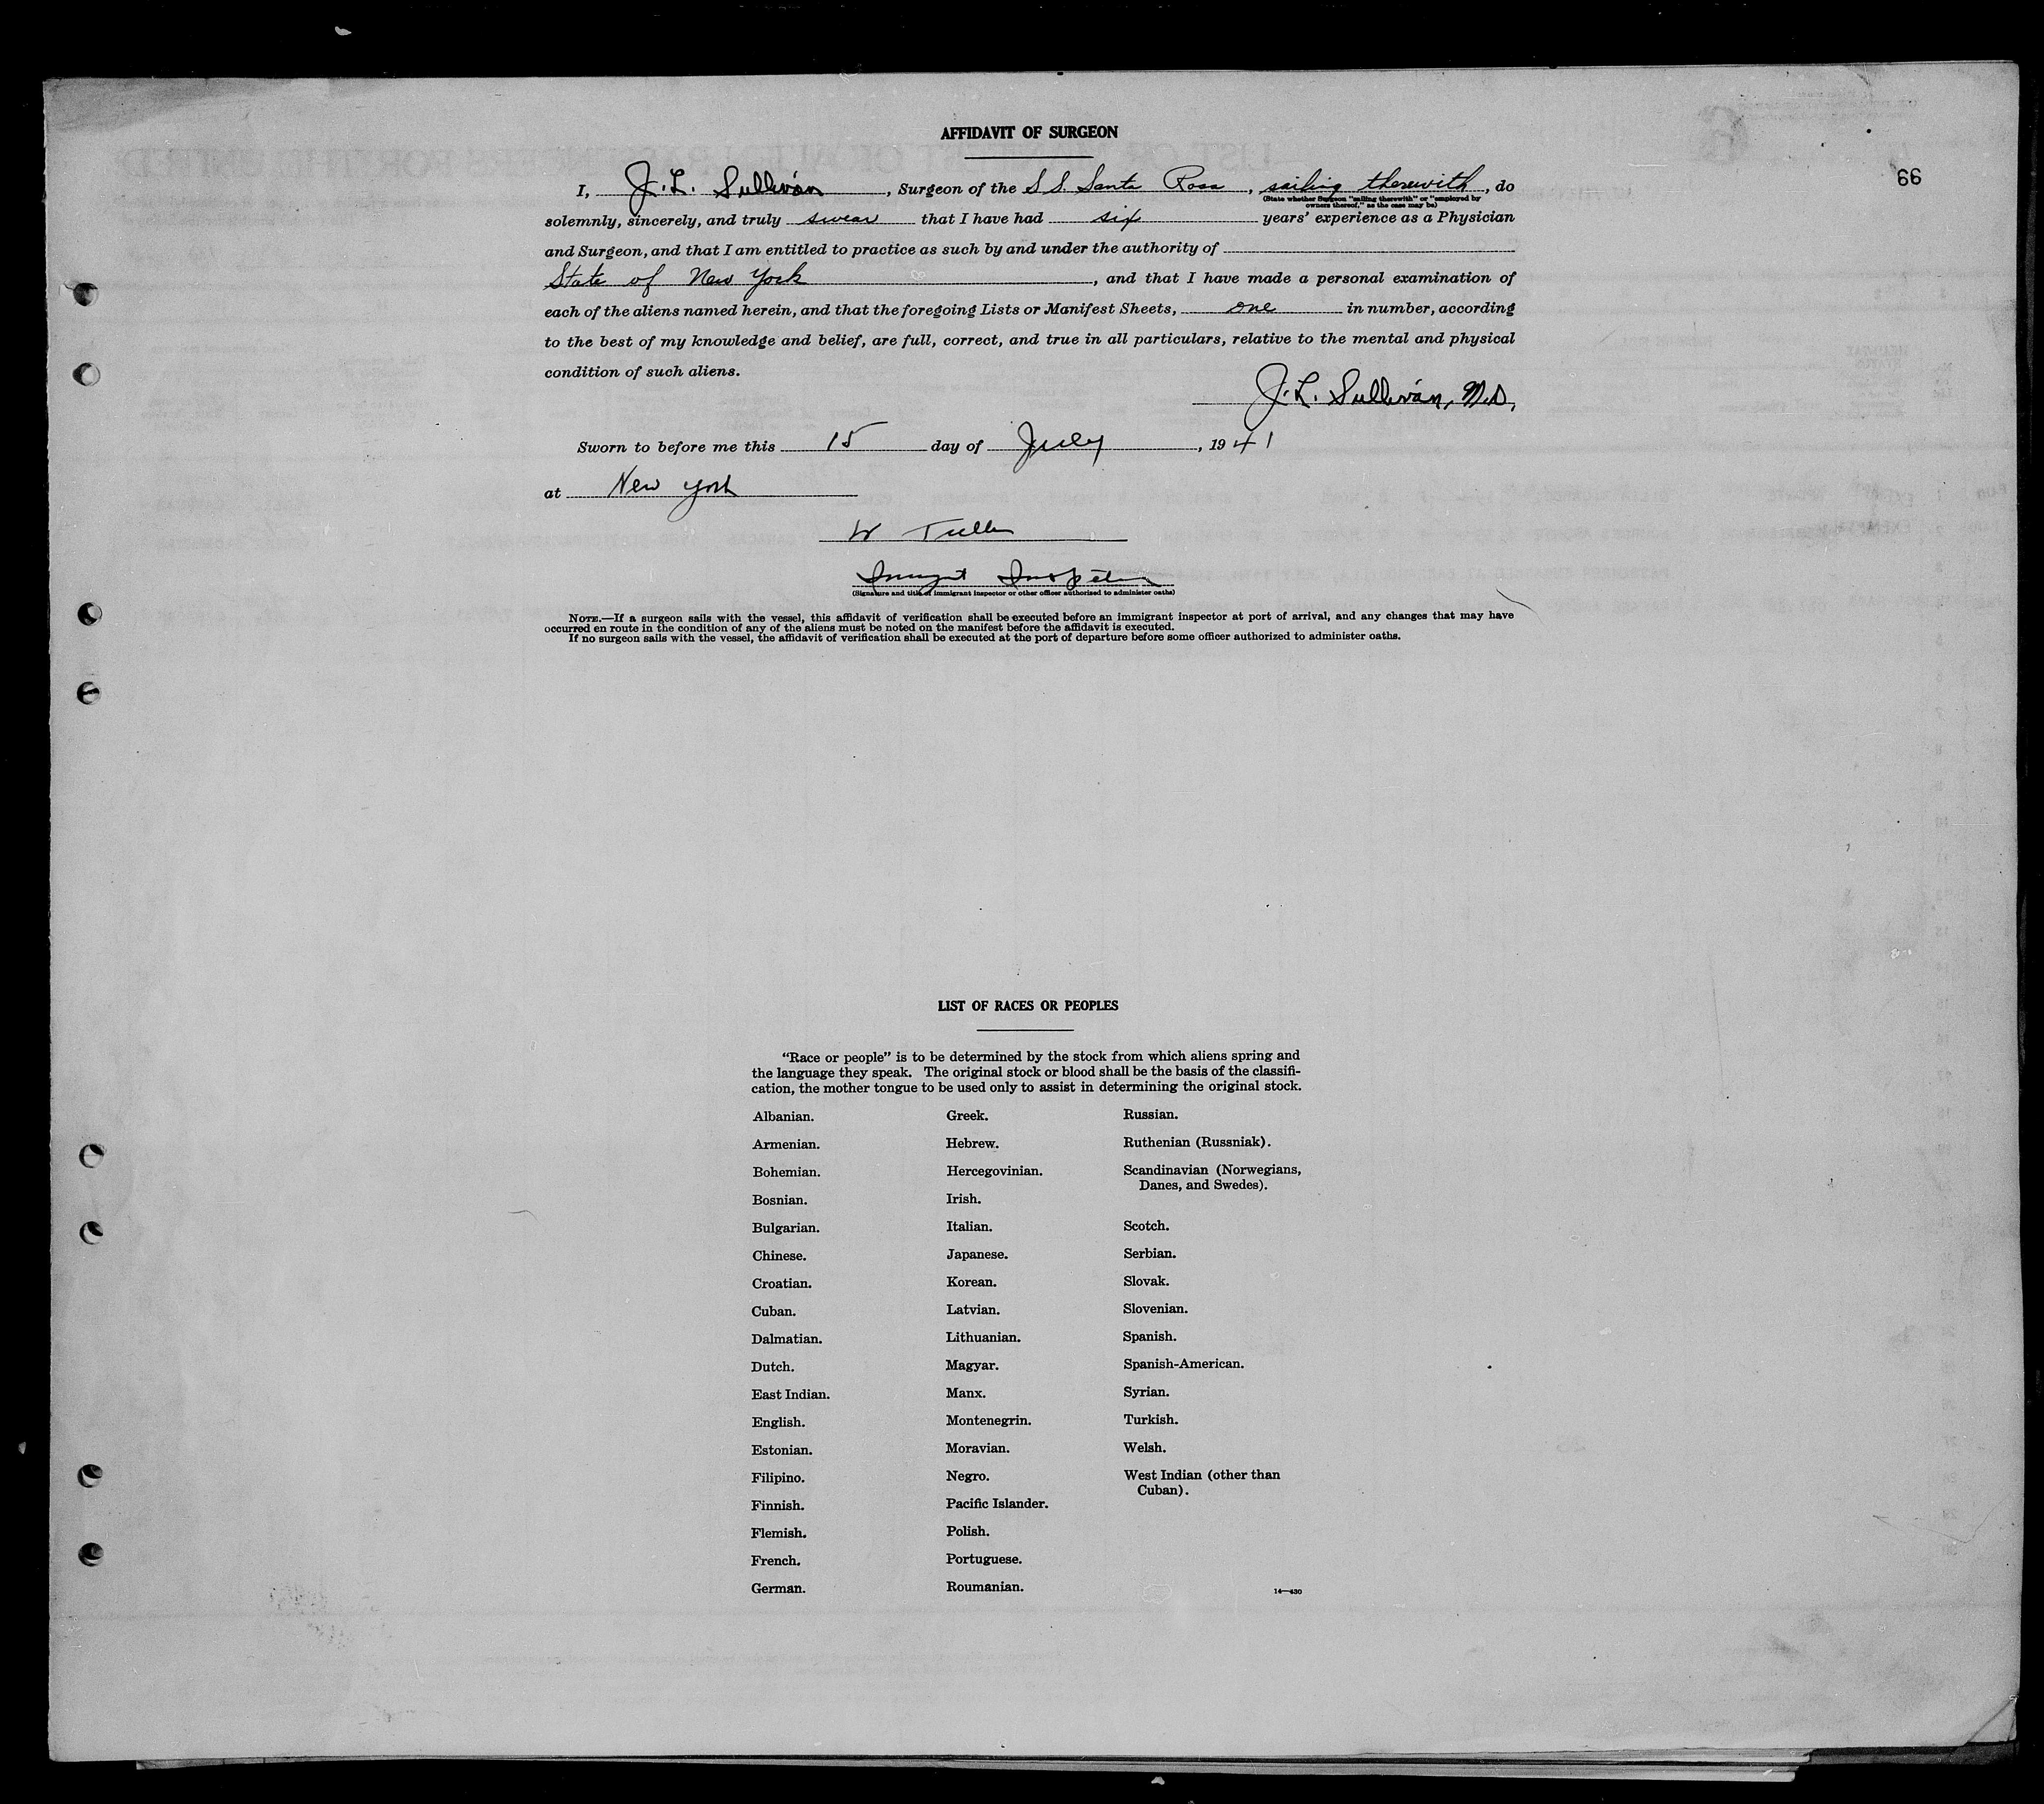 AFFIDAVIT OF SURGEON
66
I, J. L. Sullivan, Surgeon of the S.S. Santa Rosa, sailing therewith, do
(State whether Surgeon "sailing therewith" or "employed by
owners thereof," as the case may be)
solemnly, sincerely, and truly swear that I have had six years' experience as a Physician
and Surgeon, and that I am entitled to practice as such by and under the authority of
State of New York, and that I have made a personal examination of
each of the aliens named herein, and that the foregoing Lists or Manifest Sheets, one in number, according
to the best of my knowledge and belief, are full, correct, and true in all particulars, relative to the mental and physical
condition of such aliens.
J. L. Sullivan, M.D.
Sworn to before me this 15 day of July, 1941
at New York
W
(Signature and title of immigrant inspector or other officer authorized to administer oaths)
NOTE.—If a surgeon sails with the vessel, this affidavit of verification shall be executed before an immigrant inspector at port of arrival, and any changes that may have
occurred en route in the condition of any of the aliens must be noted on the manifest before the affidavit is executed.
If no surgeon sails with the vessel, the affidavit of verification shall be executed at the port of departure before some officer authorized to administer oaths.
LIST OF RACES OR PEOPLES
"Race or people" is to be determined by the stock from which aliens spring and
the language they speak. The original stock or blood shall be the basis of the classifi-
cation, the mother tongue to be used only to assist in determining the original stock.
Albanian.
Armenian.
Bohemian.
Bosnian.
Bulgarian.
Chinese.
Croatian.
Cuban.
Dalmatian.
Dutch.
East Indian.
English.
Estonian.
Filipino.
Finnish.
Flemish.
French.
German.
Greek.
Hebrew.
Hercegovinian.
Irish.
Italian.
Japanese.
Korean.
Latvian.
Lithuanian.
Magyar.
Manx.
Montenegrin.
Moravian.
Negro.
Pacific Islander.
Polish.
Portuguese.
Roumanian.
Russian.
Ruthenian (Russniak).
Scandinavian (Norwegians,
Danes, and Swedes).
Scotch.
Serbian.
Slovak.
Slovenian.
Spanish.
Spanish-American.
Syrian.
Turkish.
Welsh.
West Indian (other than
Cuban).
14—430